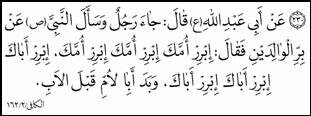 ﴿٢٣﴾ عَنْ أَبِي عَبْدِ اللهِ (ع) قالَ: جاءَ رَجُلٌ وَسَأَلَ النَّبِيَّ (ص) عَنْ
بِرِّ الْوالِدَيْنِ فَقالَ: اِبْرِزْ أُمَّكَ اِبْرِزْ أُمَّكَ اِبْرِزْ أُمَّكَ، اِبْرِزْ أَباكَ
اِبْرِزْ أَباكَ اِبْرِزْ أَباكَ، وَبَدَ أَبِا لْاُمِّ قَبْلَ الْاَبِ.
الكافی/٢/١٦٢